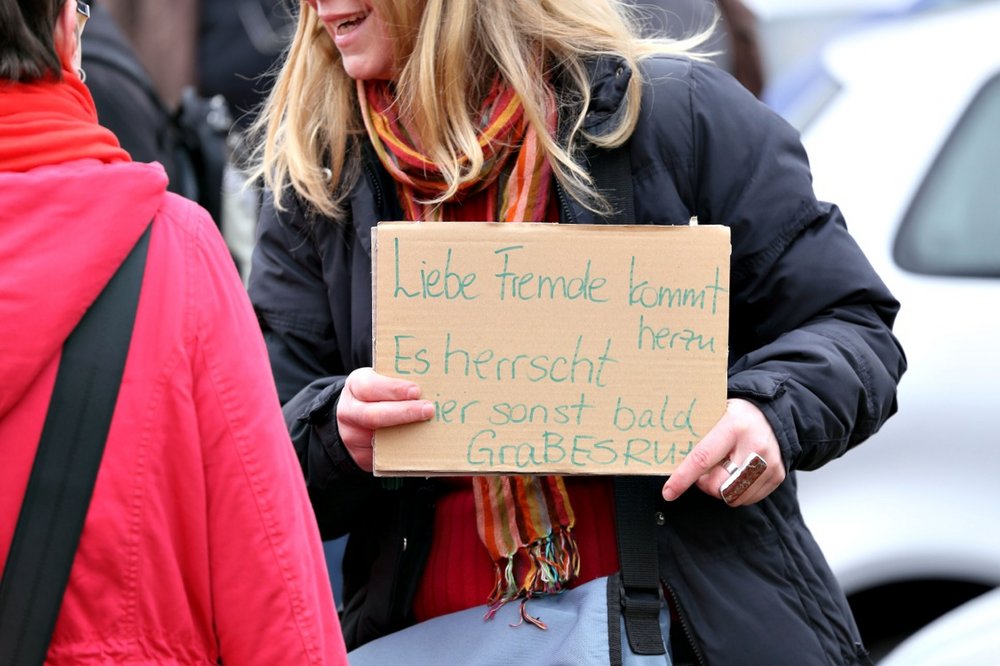 Liebe Fremde kommt
herzu
Es herrscht
ier sonst bald
GraBESRU